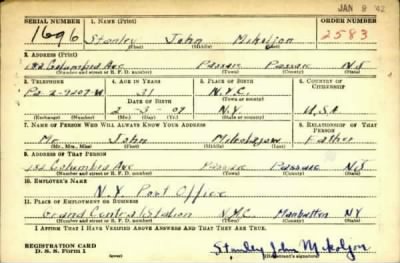 JAN 8 '42
SERIAL NUMBER 1. NAME (Print) ORDER NUMBER
1696 Stanley John Mikoljon 2583
(First) (Middle) (Last)
2. ADDRESS (Print)
132 Columbia Ave Passaic Passaic N.J
(Number and street or R. F. D. number) (Town) (County) (State)
3. TELEPHONE 4. AGE IN YEARS 5. PLACE OF BIRTH 6. COUNTRY OF CITIZENSHIP
31 N.Y.C.
DATE OF BIRTH (Town or county)
Pa-2-9207-W 2-3-07 N.Y. U.S.A
(Exchange) (Number) (Mo.) (Day) (Yr.) (State or country)
7. NAME OF PERSON WHO WILL ALWAYS KNOW YOUR ADDRESS 8. RELATIONSHIP OF THAT PERSON
Mr John Father
(Mr., Mrs., Miss) (First) (Middle) (Last)
9. ADDRESS OF THAT PERSON
132 Columbia Ave Passaic Passaic N.J
(Number and street or R. F. D. number) (Town) (County) (State)
10. EMPLOYER'S NAME
N.Y. Post Office
11. PLACE OF EMPLOYMENT OR BUSINESS
Grand Central Station N.Y.C. Manhatten NY
(Number and street or R. F. D. number) (Town) (County) (State)
I AFFIRM THAT I HAVE VERIFIED ABOVE ANSWERS AND THAT THEY ARE TRUE.
REGISTRATION CARD
D. S. S. FORM 1 Stanley John Mikoljon
(Registrant's signature)